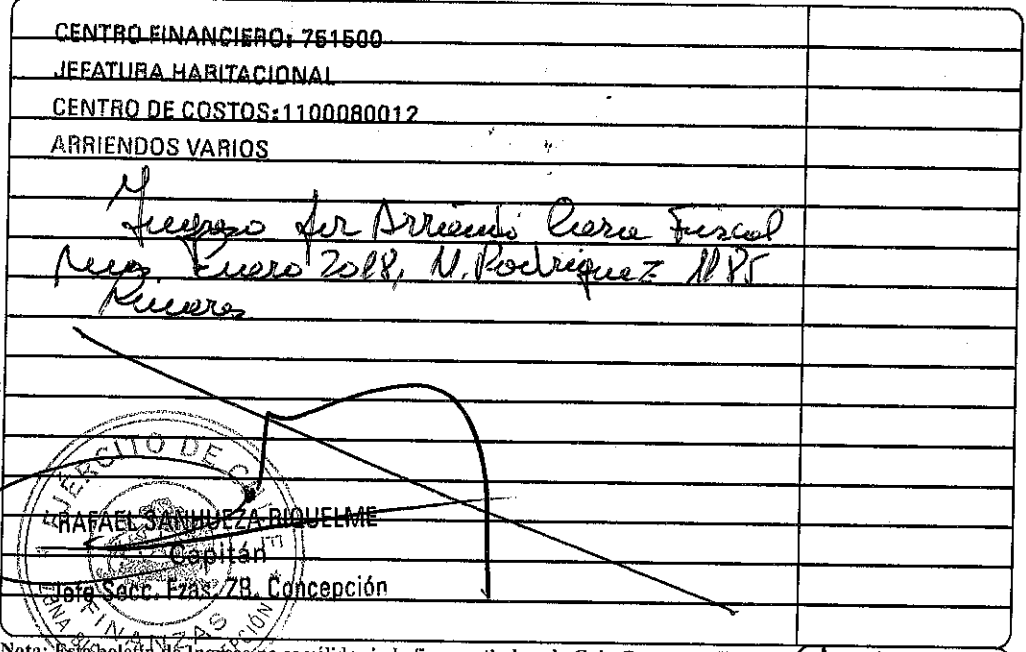 CENTRO FINANCIERO: 751500
JEFATURA HABITACIONAL
CENTRO DE COSTOS:1100080012
ARRIENDOS VARIOS
Ingreso por Arriendo Casa Fiscal
Mes Enero 2018, M. Rodriguez 1185
EJERCITO DE CHILE
RAFAEL SANHUEZA RIQUELME
Capitán
Jefe Secc. Fzas. ZB. Concepción
FINANZAS
Nota: Este boletín de Ingreso no es válido